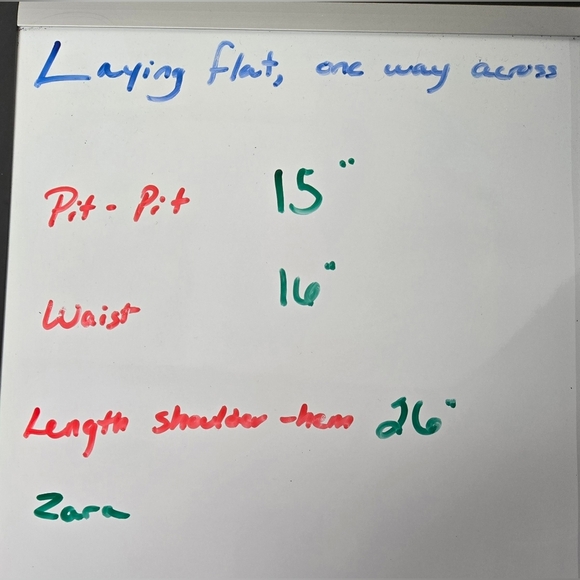 Laying flat, one way across
Pit - Pit 15"
Waist 16"
Length shoulder - hem 26"
Zara